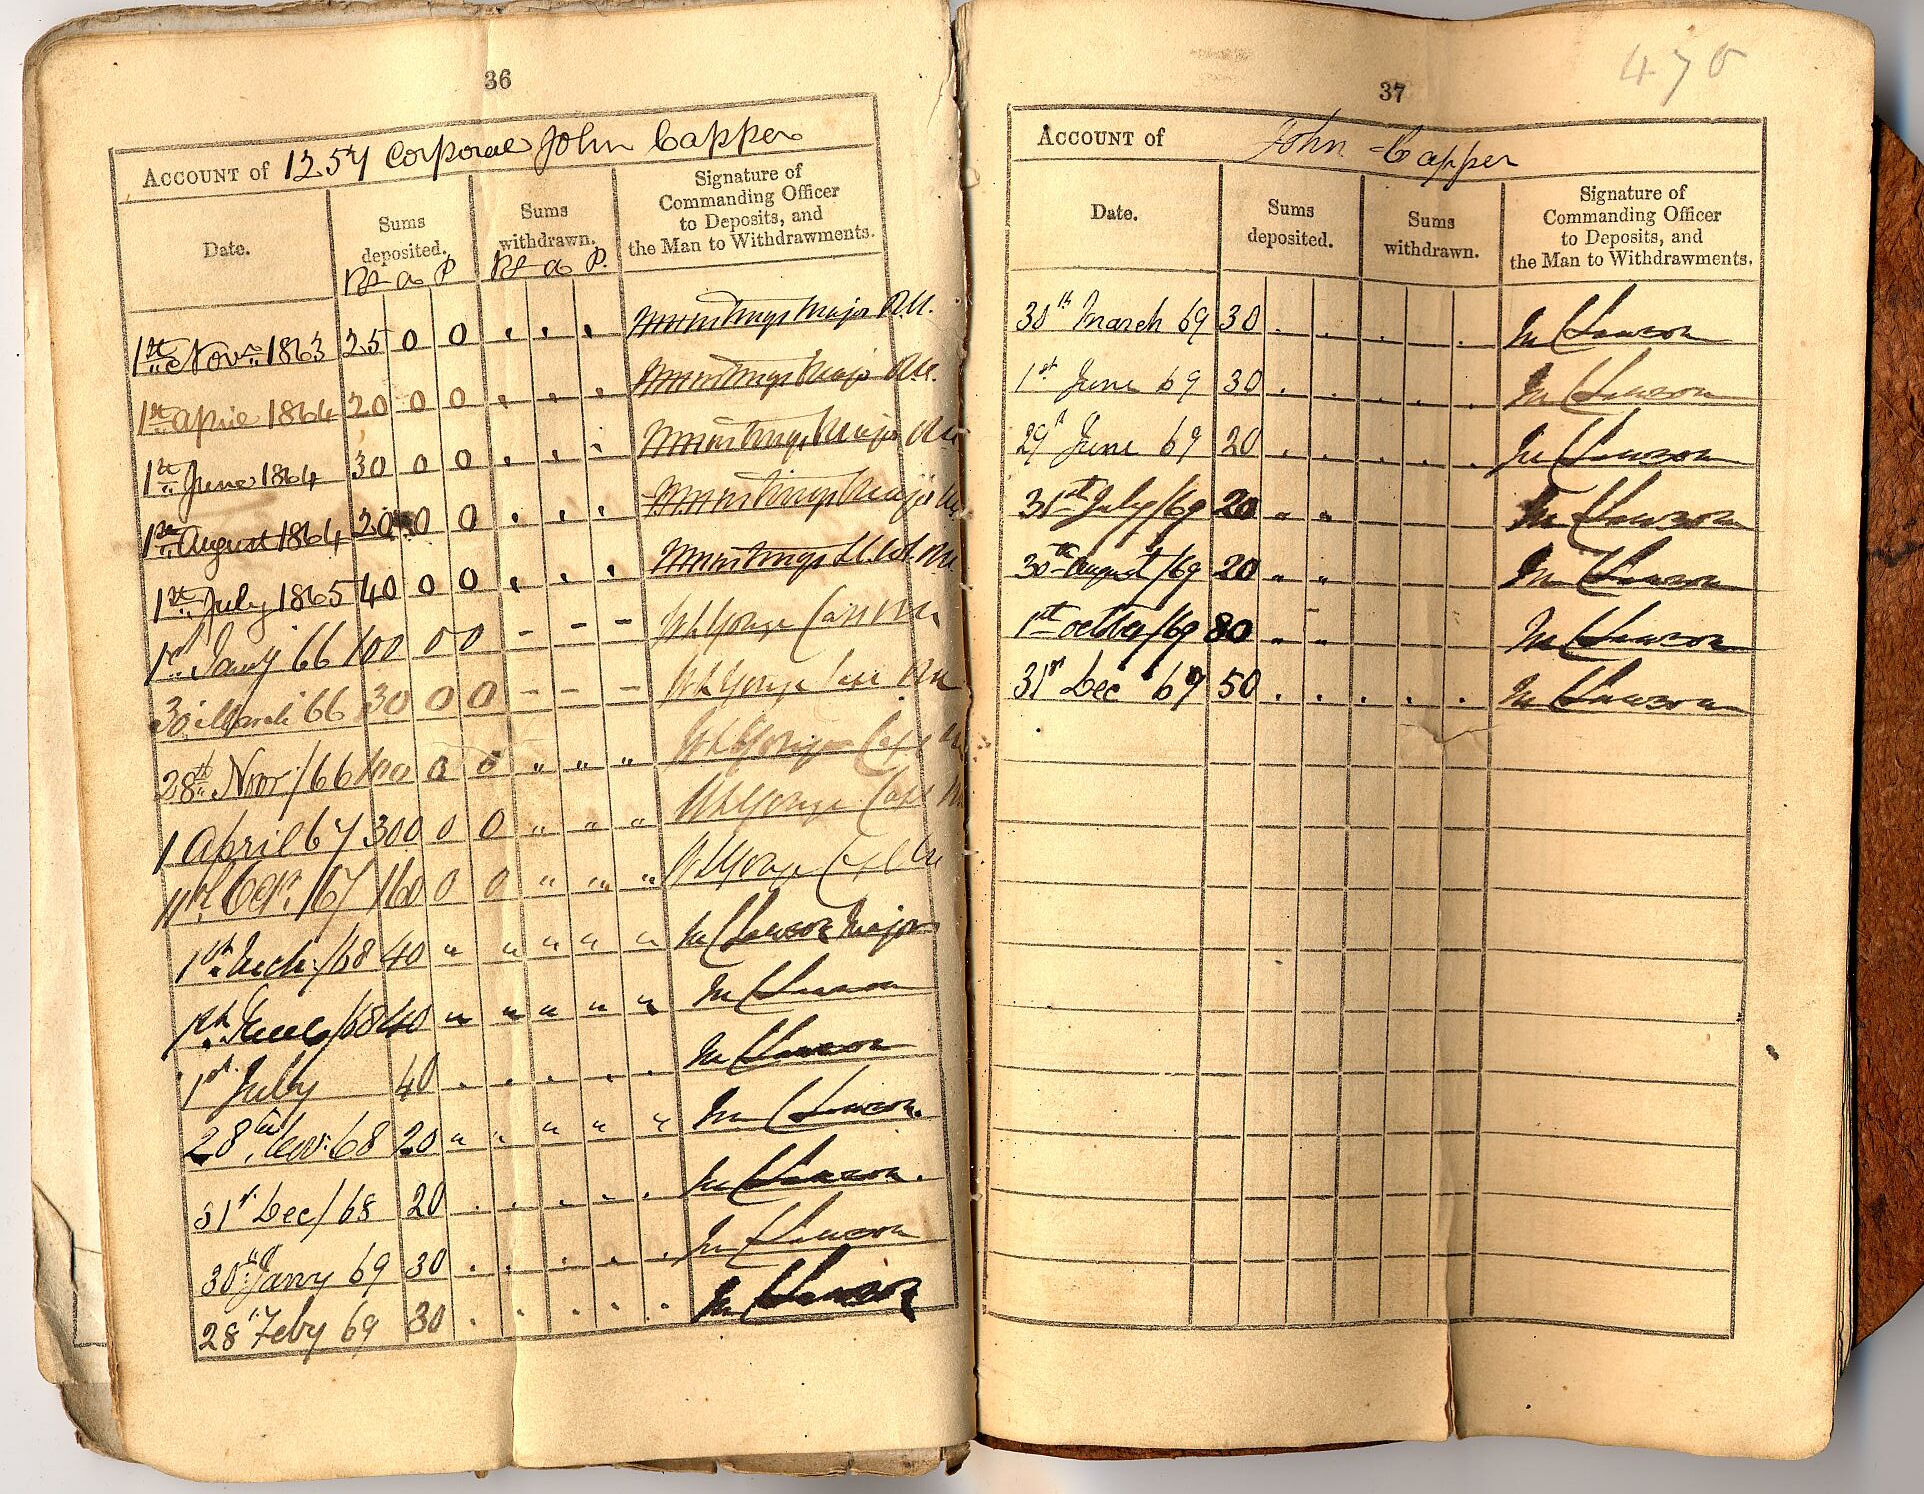 36
ACCOUNT of 1257 Corporal John Capper
Date.
Sums deposited.
Sums withdrawn.
Signature of
Commanding Officer
to Deposits, and
the Man to Withdrawments.
Rs a P
Rs a P.
1st Novr. 1863 25 0 0 Major R.A.
1st April 1864 20 0 0 Major R.A.
1st June 1864 30 0 0 Major
1st August 1864 20 0 0 Major
1st July 1865 40 0 0 Lt. Col. R.A.
1st Jany 66 100 0 0 - - - George Capt R.A.
30 March 66 30 0 0 - - - George Capt R.A.
28th Novr/66 100 0 0 " " " George Capt
1 April 67 300 0 0 " " " George Capt
/67 160 0 0 " " " George Capt
1st Mch./68 40 " " " " " Lawson Major
1st June/68 40 " " " " " Lawson
1st July 40 . . . . . Lawson
28th Nov: 68 20 " " " " " Lawson.
31st Dec/68 20 . . . . . Lawson.
30th Jany 69 30 . . . . . Lawson
28 Feby 69 30 . . . . . Lawson
37
470
ACCOUNT of John Capper
Date.
Sums
deposited.
Sums
withdrawn.
Signature of
Commanding Officer
to Deposits, and
the Man to Withdrawments.
30th March 69 30 . . . . Lawson
1st June 69 30 . . . . . Lawson
29 June 69 20 . . . . . Lawson
31st July/69 20 " " Lawson
30th August/69 20 " " Lawson
1st October/69 80 " " Lawson
31st Dec 69 50 . . . . . Lawson